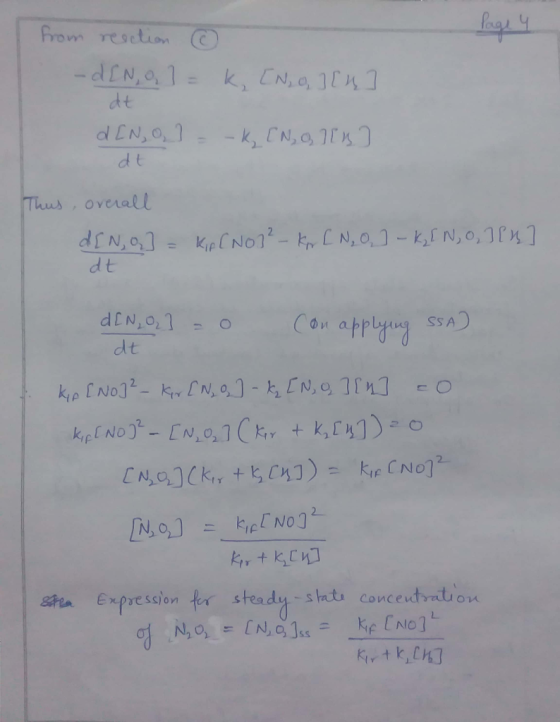 Page 4
From reaction (C)
-d[N₂O₂]/dt = k₂ [N₂O₂][H₂]
d[N₂O₂]/dt = -k₂ [N₂O₂][H₂]
Thus, overall
d[N₂O₂]/dt = k₁f [NO]² - k₁r [N₂O₂] - k₂[N₂O₂][H₂]
d[N₂O₂]/dt = 0 (On applying SSA)
k₁f [NO]² - k₁r [N₂O₂] - k₂ [N₂O₂][H₂] = 0
k₁f [NO]² - [N₂O₂] (k₁r + k₂[H₂]) = 0
[N₂O₂] (k₁r + k₂[H₂]) = k₁f [NO]²
[N₂O₂] = k₁f [NO]² / k₁r + k₂[H₂]
Expression for steady-state concentration
of N₂O₂ = [N₂O₂]ss = k₁f [NO]² / k₁r + k₂[H₂]